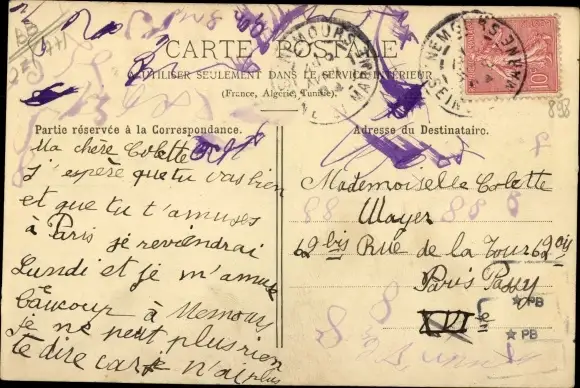 CARTE POSTALE
A UTILISER SEULEMENT DANS LE SERVICE INTÉRIEUR
(France, Algérie, Tunisie).
Partie réservée à la Correspondance.
Ma chère Colette
j'espère que tu vas bien
et que tu t'amuses
à Paris je reviendrai
Lundi et je m'amuse
beaucoup à Nemours
je ne peut plus rien
te dire car je n'ai plus
Adresse du Destinataire.
Mademoiselle Colette
Mayer
62 bis Rue de la Tour 62 bis
Paris Passy
XVI
NEMOURS
NEMOURS
SEINE
10
PB
PB